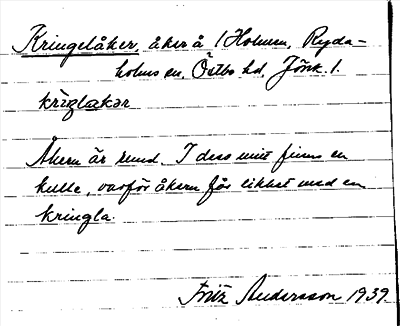 Kringelåker, åker å 1 Holmen, Ryda-
holms sn, Östbo hd, Jönk. l.
kriŋlakər
Åkern är rund. I dess mitt finns en
kulle, varför åkern får likhet med en
kringla.
Fritz Andersson 1939